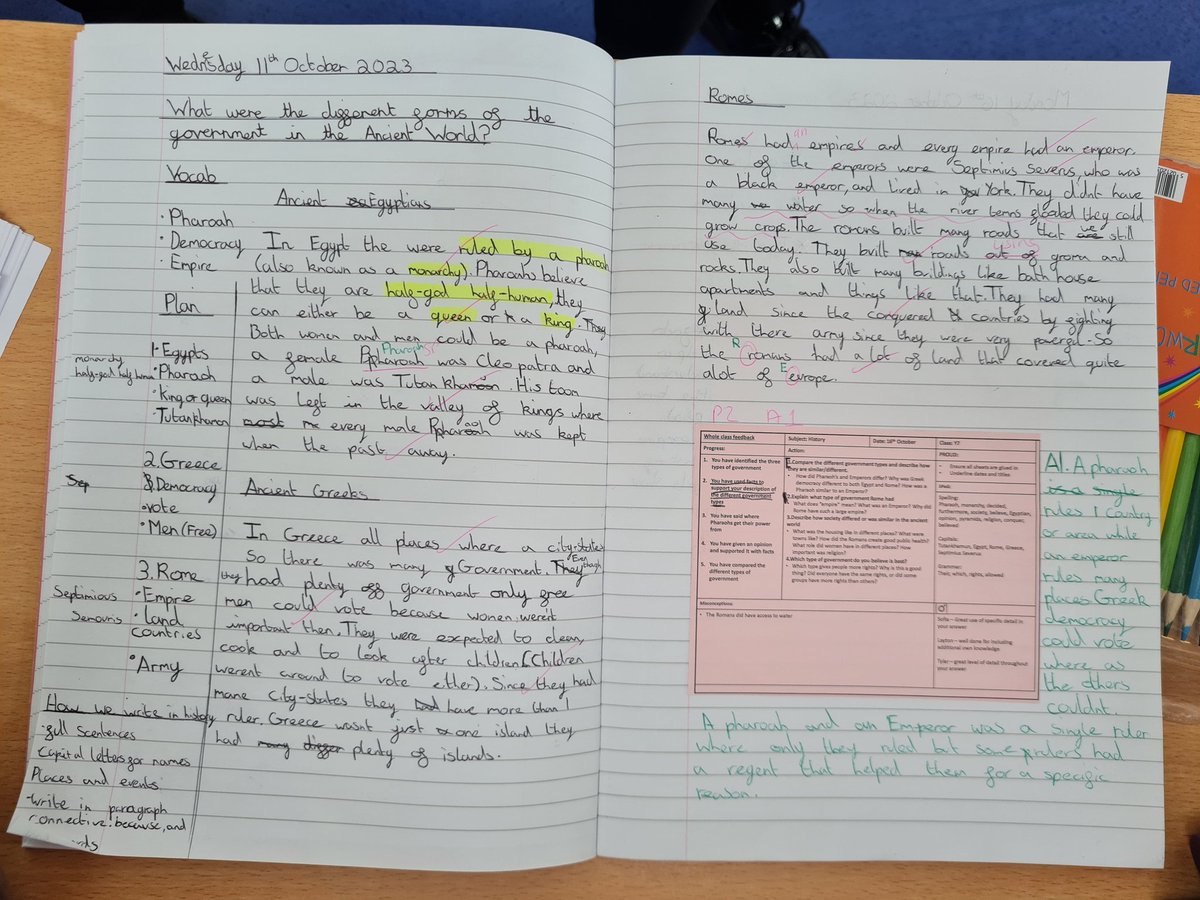 Wednesday 11th October 2023
What were the different forms of the
government in the Ancient World?
Vocab
Ancient Egyptians
• Pharoah
• Democracy
• Empire
In Egypt the were ruled by a pharoah
(also known as a monarchy). Pharoahs believe
that they are half-god half-human, they
can either be a queen or a king. They
Both women and men could be a pharoah,
a female Pharoah was Cleopatra and
a male was Tutankhamon. His toom
was left in the valley of kings where
every male Pharoah was kept
when the past away.
Plan
1. Egypts
monarchy
half-god half human
• Pharoah
• King or queen
• Tutankhamon
2. Greece
• Democracy
• vote
• Men (Free)
3. Rome
Septimious
Semouris
• Empire
• land
countries
• Army
How we write in history
• full scentences
Capital letters for names
Places and events.
• write in paragraph
connective: because, and
Ancient Greeks
In Greece all places where a city-states
So there was many Government. They Even though
they had plenty of government only free
men could vote because women, werent
important then. They were expected to clean,
cook and to look after children (Children
werent around to vote either). Since they had
mane city-states they had have more than 1
ruler. Greece wasnt just one island they
had many plenty of islands.
Romes
Romes had an empires and every empire had an emperor.
One of the emperors were Septimius Severus, who was
a black emperor, and lived in York. They didnt have
many water so when the river terns flooded they could
grow crops. The romans built many roads that we are still
use today. They built roads out of using groma and
rocks. They also built many buildings like bath house
apartments and things like that. They had many
land since the conquered countries by fighting
with there army since they were very powerful. So
the Romans had a lot of land that covered quite
alot of Europe.
P2 A1
Whole class feedback Subject: History Date: 16th October Class: Y7
Progress:
1. You have identified the three types of government
2. You have used facts to support your description of the different government types
3. You have said where Pharaohs get their power from
4. You have given an opinion and supported it with facts
5. You have compared the different types of government
Action:
1.Compare the different government types and describe how they are similar/different.
How did Pharaoh's and Emperors differ? Why was Greek democracy different to both Egypt and Rome? How was a Pharaoh similar to an Emperor?
2.Explain what type of government Rome had
• What does "empire" mean? What was an Emperor? Why did Rome have such a large empire?
3.Describe how society differed or was similar in the ancient world
• What was the housing like in different places? What were towns like? How did the Romans create good public health? What role did women have in different places? How important was religion?
4.Which type of government do you believe is best?
• Which type gives people more rights? Why is this a good thing? Did everyone have the same rights, or did some groups have more rights than others?
PROUD:
• Ensure all sheets are glued in
• Underline dates and titles
SPaG:
Spelling:
Pharaoh, monarchy, decided, furthermore, society, believe, Egyptian, opinion, pyramids, religion, conquer, believed
Capitals:
Tutankhamun, Egypt, Rome, Greece, Septimius Severus
Grammar:
Their, which, rights, allowed
Misconceptions:
• The Romans did have access to water
Sofia – Great use of specific detail in your answer
Layton – well done for including additional own knowledge
Tyler – great level of detail throughout your answer
A1. A pharoah
is a single
rules 1 country
or area while
an emperor
rules many
places Greek
democracy
could vote
where as
the others
couldnt.
A pharoah and an Emperor was a single ruler
where only they ruled but some rulers had
a regent that helped them for a specific
reason.